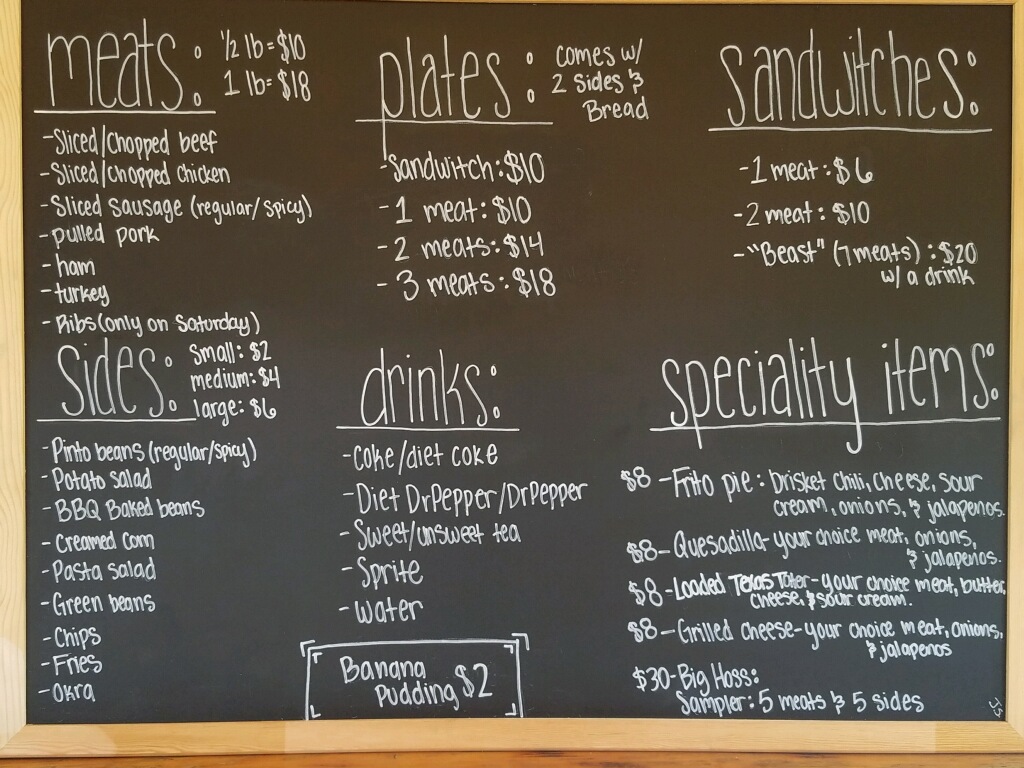 meats: 1/2 lb = $10
1 lb = $18
-Sliced/Chopped beef
-Sliced/Chopped chicken
-Sliced sausage (regular/spicy)
-pulled pork
-ham
-turkey
-Ribs (only on Saturday)
plates: comes w/
2 sides &
Bread
-Sandwitch: $10
-1 meat: $10
-2 meats: $14
-3 meats: $18
Sandwitches:
-1 meat: $6
-2 meat: $10
-"Beast" (7 meats): $20
w/ a drink
Sides: Small: $2
medium: $4
large: $6
-Pinto beans (regular/spicy)
-Potato salad
-BBQ Baked beans
-Creamed corn
-Pasta salad
-Green beans
-Chips
-Fries
-Okra
drinks:
-coke/diet coke
-Diet DrPepper/DrPepper
-Sweet/unsweet tea
-Sprite
-water
Banana
Pudding $2
speciality items:
$8-Frito pie: Brisket chili, cheese, sour
cream, onions, & jalapenos.
$8-Quesadilla-your choice meat, onions,
& jalapenos.
$8-Loaded Texas Tater-your choice meat, butter,
cheese, & sour cream.
$8-Grilled cheese-your choice meat, onions,
& jalapenos
$30-Big Hoss:
Sampler: 5 meats & 5 sides
JS